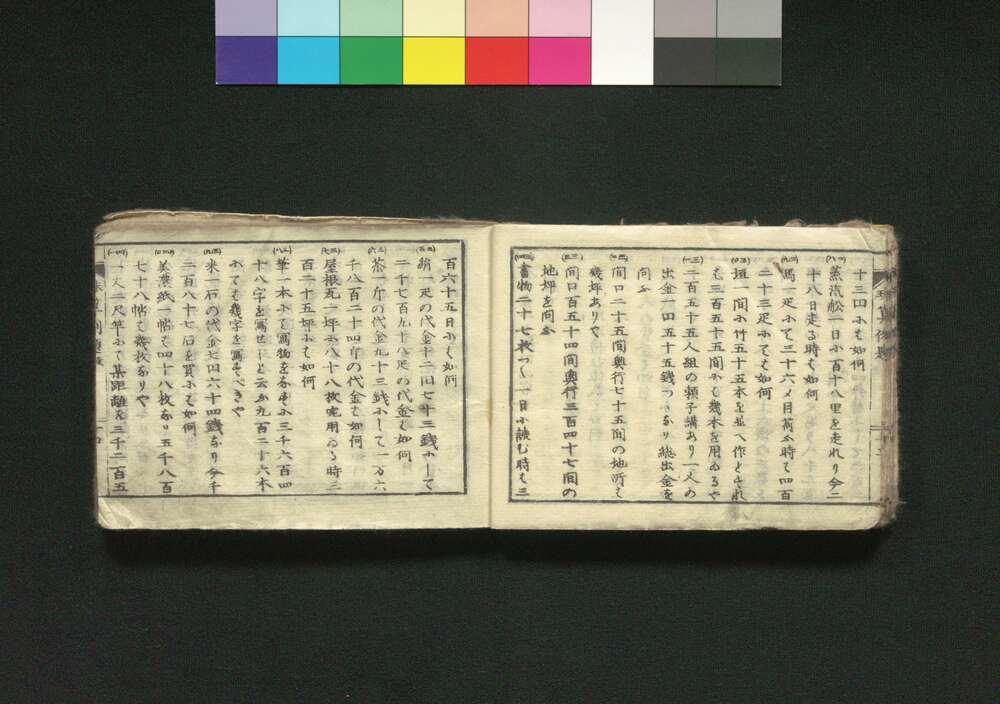 十三回ニて如何
蒸汽舩一日ニ百十八里を走れり今二
十八日走る時ハ如何
馬一疋ニて三十六〆目荷ふ時ハ四百
二十三疋ニてハ如何
垣一間ニ竹五十五本を並へ作ると
三百五十五間ニハ幾本を用ゐるや
二百五十五人組の頼子講あり一人の
出金一四五十五銭つゝなり総出金を
問ふ
間口二十五間奥行七十五間の地所ハ
幾坪ありや
間口百五十四間奥行三百四十七間の
地坪を問ふ
書物二十七枚つゝ一日ニ読む時ハ三
百六十五日ニハ如何
絹一疋の代金十二円七十三銭ニして
二千七百九十八疋の代金ハ如何
茶一斤の代金九十三銭ニして一万六
千八百二十四斤の代金ハ如何
屋根瓦一坪ニ八十八枚宛用ゐる時三
百二十五坪ニハ如何
筆一本ニて写物を
三千六百四
十八字を写せりと云ふ九百二十六本
ニてハ幾字を写すべきや
米一石の代金七円六十四銭なり今千
二百八十七石を買ふハ如何
美濃紙一帖ハ四十八枚なり五千八百
七十八帖ハ幾枚なりや
一丈二尺竿ニて某距離を三千二百五